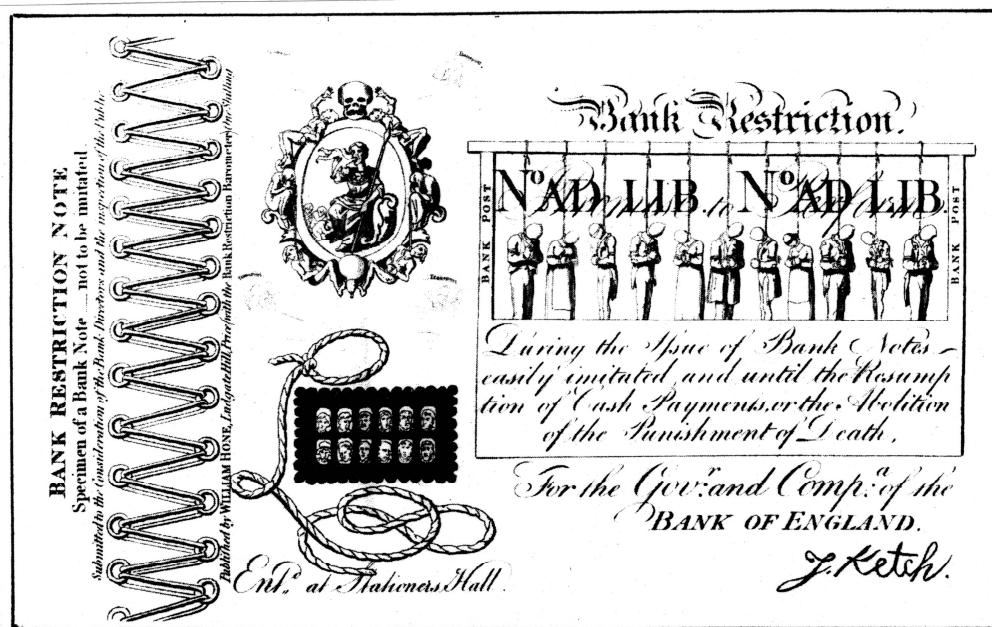 BANK RESTRICTION NOTE
Specimen of a Bank Note _ not to be imitated.
Submitted to the Consideration of the Bank Directors and the inspection of the Public.
Published by WILLIAM HONE, Ludgate Hill, Price with the Bank Restriction Barometer One Shilling
Bank Restriction.
BANK POST
Nº AD LIB. Nº AD LIB.
to Perform
BANK POST
During the Issue of Bank Notes
easily imitated, and until the Resump
tion of Cash Payments, or the Abolition
of the Punishment of Death,
For the Govr. and Compa. of the
BANK OF ENGLAND.
J. Ketch.
Entd. at Stationers Hall.